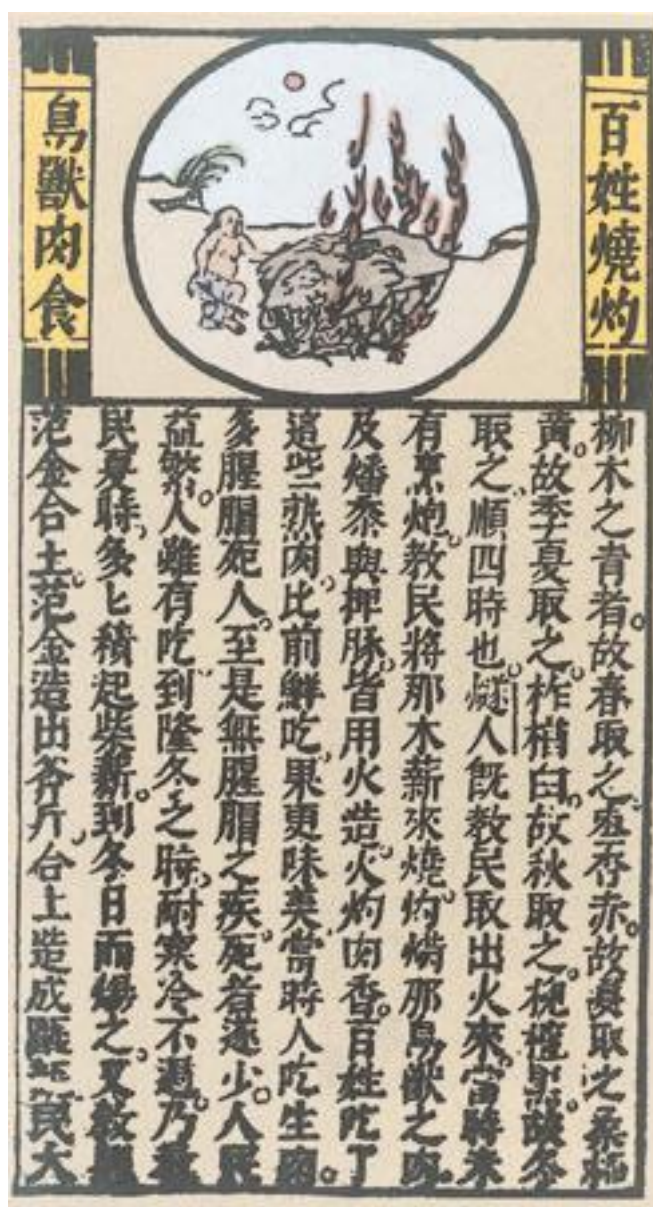 百姓燒灼
鳥獸肉食
柳木之青者。故春取之。杏赤。故夏取之。桑柘
黃。故季夏取之。柞楢白。故秋取之。槐檀黑。故冬
取之。順四時也。燧人既教民取出火來。當時未
有烹炮。教民將那木薪來燒灼那鳥獸之肉。
及燔黍與捭豚。皆用火造。火灼肉香。百姓吃了
這些熟肉。比前鮮吃。果更味美。當時人吃生肉。
多腥死人。至是無腥之疾。死者遂少。人民
益繁。人雖有吃。到隆冬之時。耐寒冷不過。乃教
民夏時。多匕積起柴薪。到冬日而煬之。又教民
范金合土。范金造出斧斤。合土造成民大